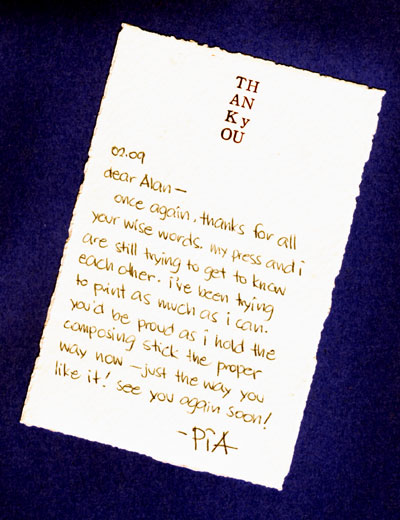 TH
AN
Ky
OU
02.09
dear Alan —
once again, thanks for all
your wise words. my press and i
are still trying to get to know
each other. i've been trying
to print as much as i can.
you'd be proud as i hold the
composing stick the proper
way now — just the way you
like it! see you again soon!
- PiA